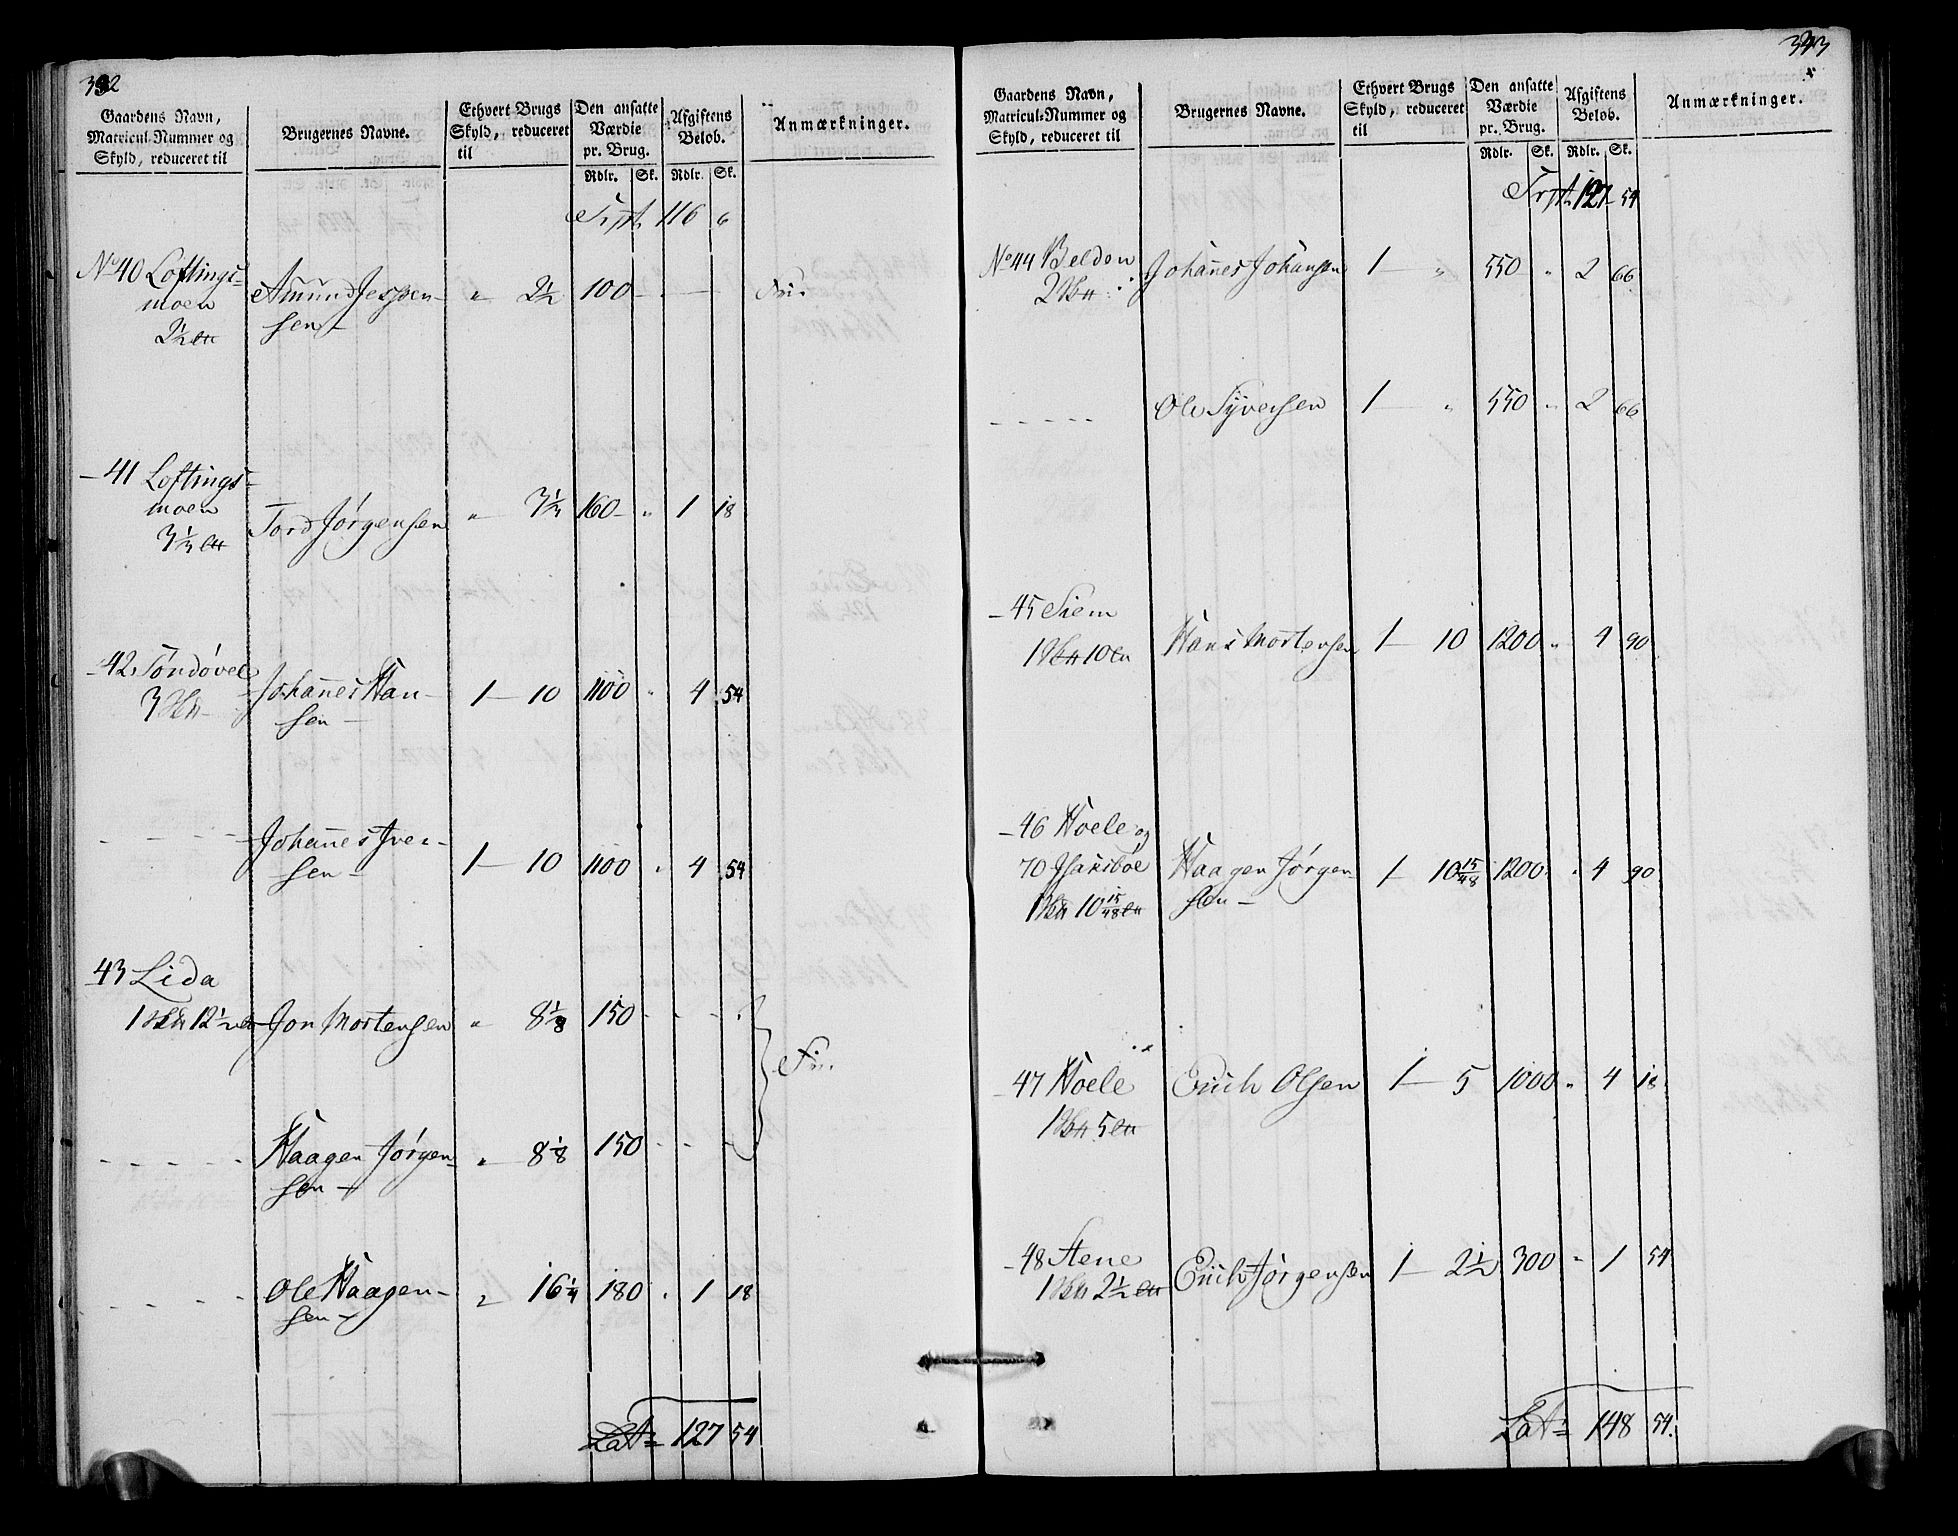 332
Gaardens Navn, Matricul-Nummer og Skyld, reduceret til
Brugernes Navne.
Ethvert Brugs Skyld, reduceret til
Den ansatte Værdie pr. Brug.
Afgiftens Beløb.
Anmærkninger.
Rdlr. Sk. Rdlr. Sk.
Trspt. 116 6
No 40 Loftings-
moen Amund Jespen- " 2½ 100 - - - Fri.
2½ sen
- 41 Loftings-
moen Tord Jørgensen " 3⅓ 160 " 1 18
3⅓
- 42 Tøndøvel Johannes Han- 1 - 10 1100 " 4 54
3 sen -
- - - - Johannes Iver- 1 - 10 1100 " 4 54
sen -
- 43 Lida
1 12½ Jon Mortensen " 8⅛ 150 - - - Fri.
- - - - Haagen Jørgen- " 8⅛ 150 - - -
sen -
- - - - Ole Haagen- " 16¼ 180 " 1 18
sen -
Lats 127 54
Gaardens Navn, Matricul-Nummer og Skyld, reduceret til
Brugernes Navne.
Ethvert Brugs Skyld, reduceret til
Den ansatte Værdie pr. Brug.
Afgiftens Beløb.
Anmærkninger.
Rdlr. Sk. Rdlr. Sk.
Trspt. 127 54
No 44 Belden Johannes Johansen 1 - " 550 " 2 66
2
- - - - Ole Syversen 1 - " 550 " 2 66
- 45 Siem
1 10 Hans Mortensen 1 - 10 1200 " 4 90
- 46 Hoele og
70 Isaksboe Haagen Jørgen- 1 - 10 15/48 1200 " 4 90
1 10 15/48 sen -
- 47 Hoele Erich Olsen 1 - 5 1000 " 4 18
1 5
- 48 Stene Erich Jørgensen 1 - 2½ 300 " 1 54
1 2½
Lats 148 54.